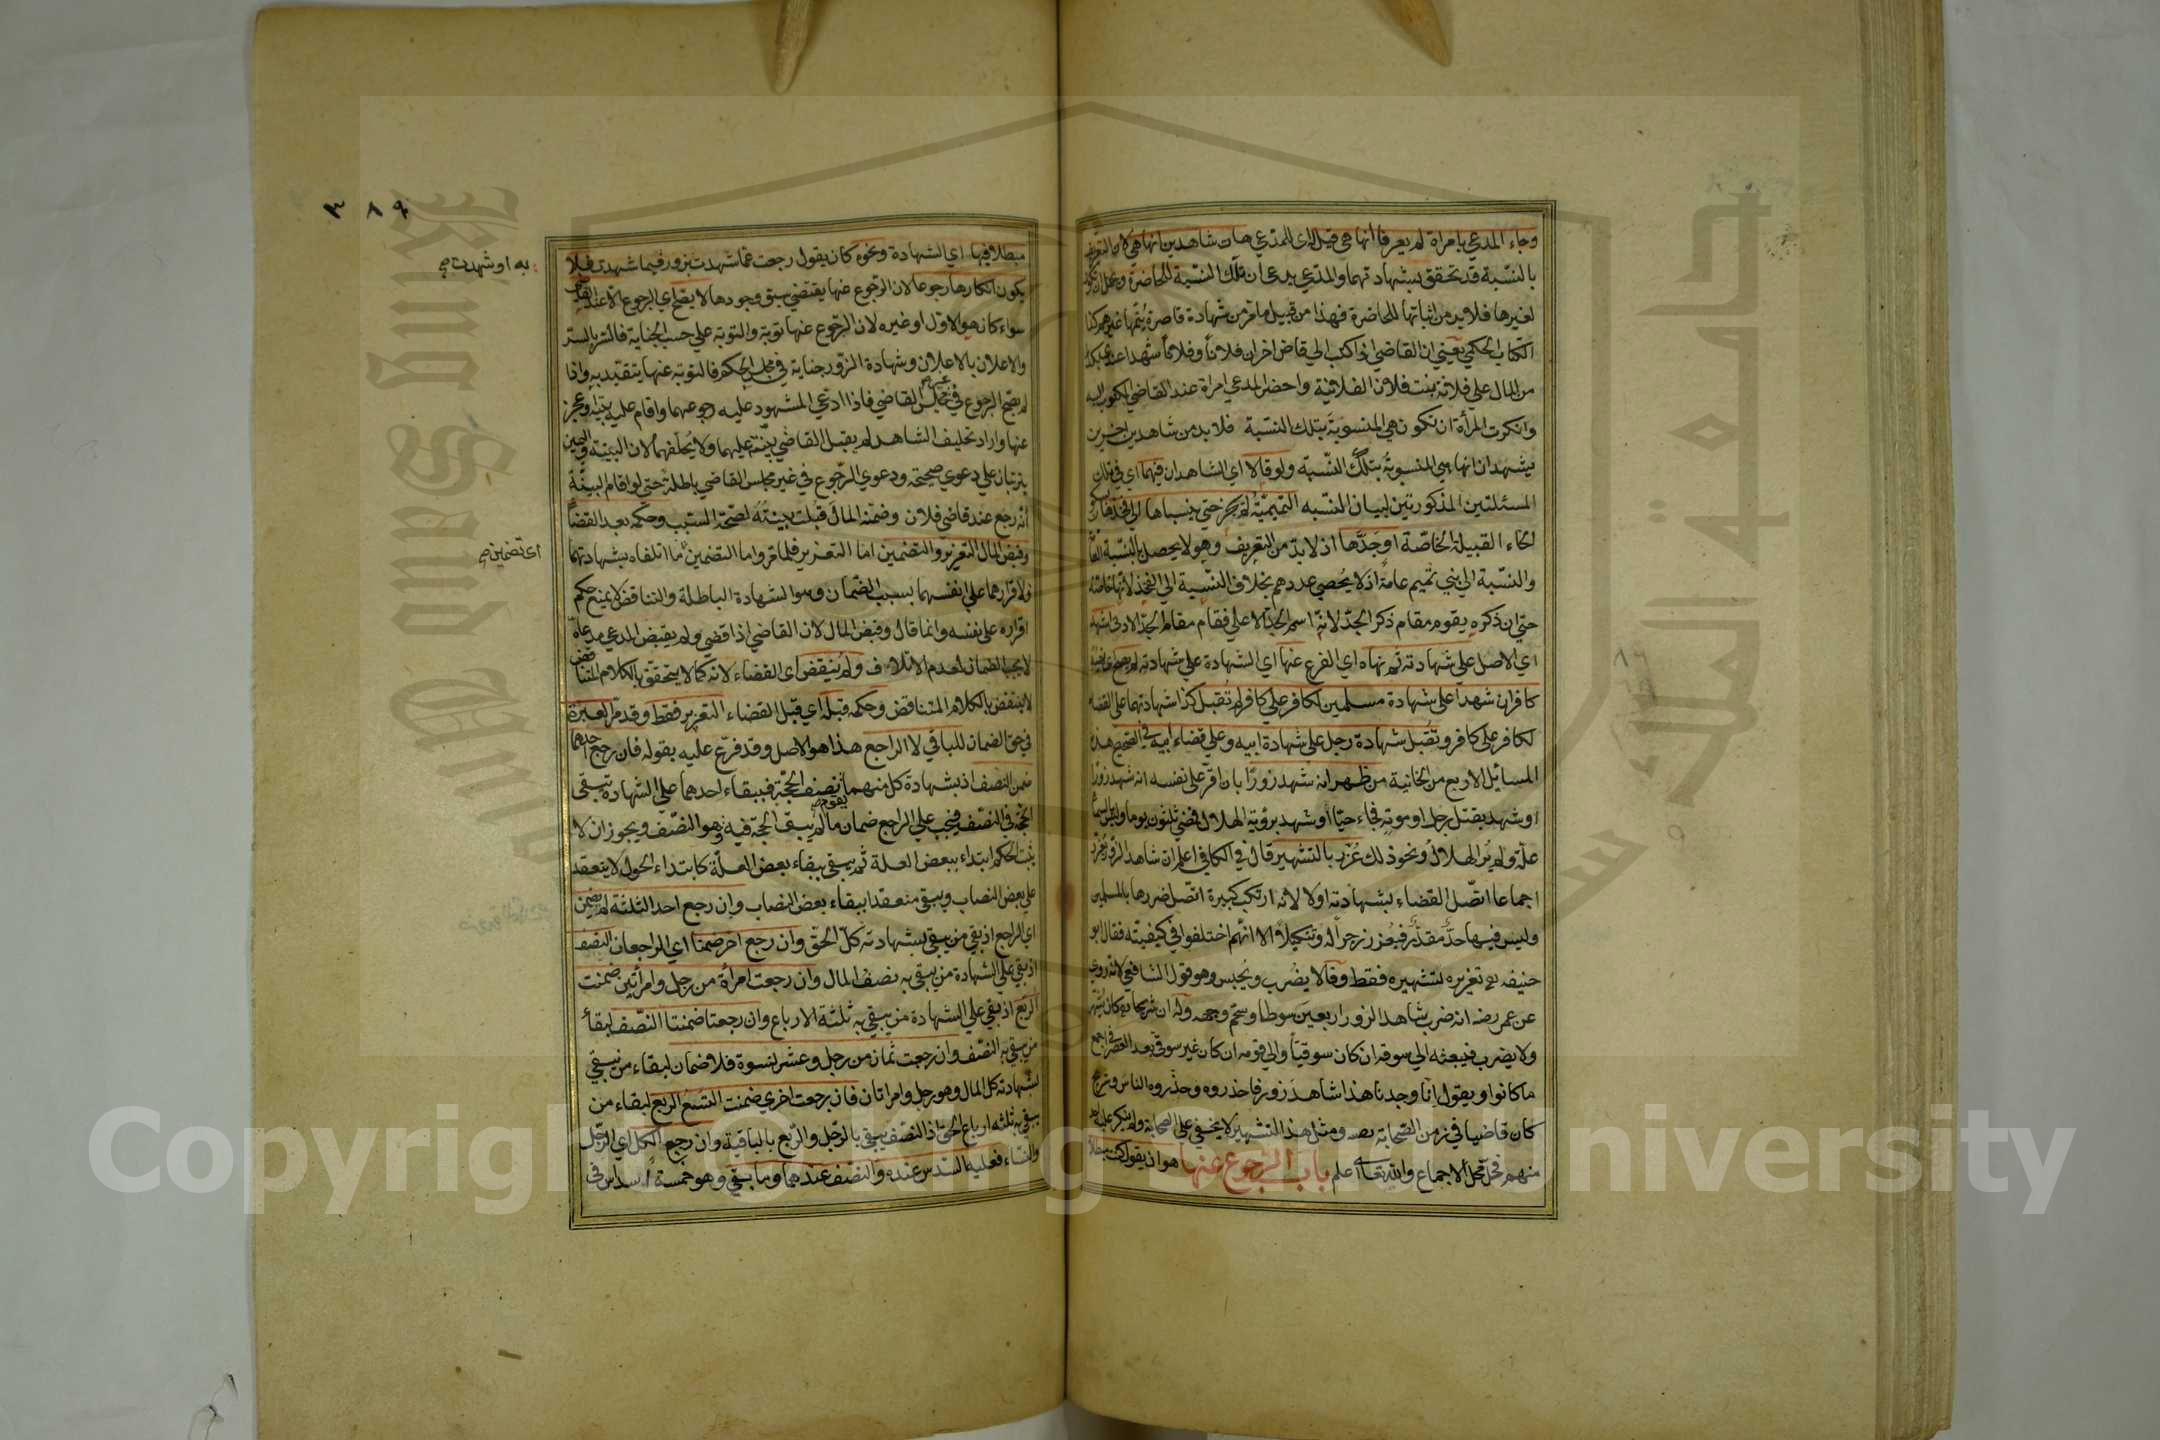 وجاء المدعي بامراة لم يعرفا انها هي قيل له اي للمدعي هات شاهدين انها هي لان التعريف
بالنسبة قد تحقق بشهادتهما والمدعي يدعي ان تلك النسبة للحاضرة ويحتمل ان يكون
لغيرها فلا بد من اثباتها للحاضرة فهذا من قبيل ما مر من شهادة قاصرة يتمها غيرهم كذا
الكتاب الحكمي يعني ان القاضي اذا كتب الي قاض اخر ان فلانا وفلانا شهدا عندي بكذا
من المال علي فلانة بنت فلان الفلانية واحضر المدعي امراة عند القاضي المكتوب اليه
وانكرت المرأة ان تكون هي المنسوبة بتلك النسبة فلا بد من شاهدين اخرين
يشهدان انها هي المنسوبة بتلك النسبة ولو قالا اي الشاهدان فيهما اي في تلك
المسئلتين المذكورتين لبيان النسبه التميمية لم يجز حتي ينسباها الي فخذها
الخاء القبيلة الخاصة او جدها اذ لا بد من التعريف وهو لا يحصل بالنسبة العامة
والنسبة الي بني تميم عامة اذ لا يحصي عددهم بخلاف النسبة الي الفخذ لانها خاصة
حتي ان ذكره يقوم مقام ذكر الجد لانه اسم الجد الاعلي فقام مقام الجد الادني اشهده
اي الاصل علي شهادته ثم نهاه اي الفرع عنها اي الشهادة علي شهادته لم يصح اي نهيه
كافران شهدا علي شهادة مسلمين لكافر علي كافر لم تقبل كذا شهادتهما علي القضاء
لكافر علي كافر وتقبل شهادة رجل علي شهادة ابيه وعلي قضاء ابيه في الصحيح هذه
المسائل الاربع من الخانية من ظهر انه شهد زورا بان اقر علي نفسه انه شهد زورا
او شهد بقتل رجل او موته فجاء حيا او شهد برؤية الهلال فمضي ثلثون يوما وليس بالسماء
علة ولم ير الهلال ونحو ذلك عزر بالتشهير قال في الكافي اعلم ان شاهد الزور يعزر
اجماعا اتصل القضاء بشهادته اولا لانه ارتكب كبيرة اتصل ضررها بالمسلمين
وليس فيها حد مقدر فيعزر زجرا له وتنكيلا الا انهم اختلفوا في كيفيته فقال ابو
حنيفه رح تعزيره تشهيره فقط وقالا يضرب ويحبس وهو قول الشافعي لانه روي
عن عمر رضه انه ضرب شاهد الزور اربعين سوطا وسخم وجهه وله ان شريحا رح كان يشهر
ولا يضرب فيبعثه الي سوقه ان كان سوقيا والي قومه ان كان غير سوقي بعد العصر اجمع
ما كانوا ويقول انا وجدنا هذا شاهد زور فاحذروه وحذروه الناس وشريح
كان قاضيا في زمن الصحابة رضه ومثل هذا التشهير لا يخفي علي الصحابة ولم ينكر عليه احد
منهم فحل محل الاجماع والله تعالى اعلم باب الرجوع عنها هو ان يقول كنت مبطلا
٣٨٩
مبطلا فيها اي الشهادة ونحوه كان يقول رجعت عما شهدت بزور فيما شهدت فلا
به او شهدت صح
يكون انكارها رجوعا لان الرجوع عنها يقتضي سبق وجودها لا يصح اي الرجوع الا عند القاضي
سواء كان هو الاول او غيره لان الرجوع عنها توبة والتوبة علي حسب الجناية فالسر بالسر
والاعلان بالاعلان وشهادة الزور جناية في مجلس الحكم فالتوبة عنها يتقيد به واذا
لم يصح الرجوع في غير مجلس القاضي فاذا ادعي المشهود عليه رجوعهما واقام عليه بينة او عجز
عنها واراد تحليف الشاهد لم يقبل القاضي بينة عليهما ولا يحلفهما لان البينة واليمين
يترتبان علي دعوي صحيحة ودعوي الرجوع في غير مجلس القاضي باطلة حتي لو اقام البينة
انه رجع عند قاضي فلان وضمنه المال قبلت بينته لصحة السبب وحكمه بعد القضاء
وقبض المال التعزير والتضمين اما التعزير فلما مر واما التضمين ما اتلفاه بشهادتهما
اي تضمين صح
فلاقرارهما علي انفسهما بسبب الضمان وهو الشهادة الباطلة والتناقض لا يمنع حكم
اقراره علي نفسه وانما قال وقبض المال لان القاضي اذا قضي ولم يقبض المدعي مدعاه
لا يجب الضمان لعدم الاتلاف ولم ينقض اي القضاء لانه كما لا يتحقق بالكلام المتناقض
لا ينتقض بالكلام المتناقض وحكمه قبله اي قبل القضاء التعزير فقط وقد مر العبرة
في حق الضمان للباقي لا الراجع هذا هو الاصل وقد فرع عليه بقوله فان رجع احدهما
ضمن النصف اذ بشهادة كل منهما يقوم نصف الحجة فببقاء احدهما علي الشهادة تبقي
الحجة في النصف فيجب علي الراجع ضمان ما لم يبق الحجة فيه وهو النصف ويجوز ان لا
يثبت الحكم ابتداء ببعض العلة ثم يبقي ببقاء بعض العلة كابتداء الحول لا ينعقد
علي بعض النصاب ويبقي منعقدا ببقاء بعض النصاب وان رجع احد الثلثة لم يضمن
اي الراجع اذ بقي من يبقي بشهادته كل الحق وان رجع اخر ضمنا اي الراجعان النصف
اذ بقي علي الشهادة من يبقي به نصف المال وان رجعت امرأة من رجل وامرأتين ضمنت
الربع اذ بقي علي الشهادة من يبقي به ثلثة الارباع وان رجعتا ضمنتا النصف لبقاء
من يبقي به النصف وان رجعت ثمان من رجل وعشر نسوة فلا ضمان لبقاء من يبقي
بشهادته كل المال وهو رجل وامراتان فان رجعت اخري ضمنت التسع الربع لبقاء من
يبقي به ثلثه ارباع الحق اذ النصف يبقي بالرجل والربع بالباقية وان رجع الكل اي الرجل
والنساء فعليه السدس عنده والنصف عندهما وما بقي وهو خمسة اسداس في
Copyright © King Saud University
جامعة الملك سعود
King Saud University